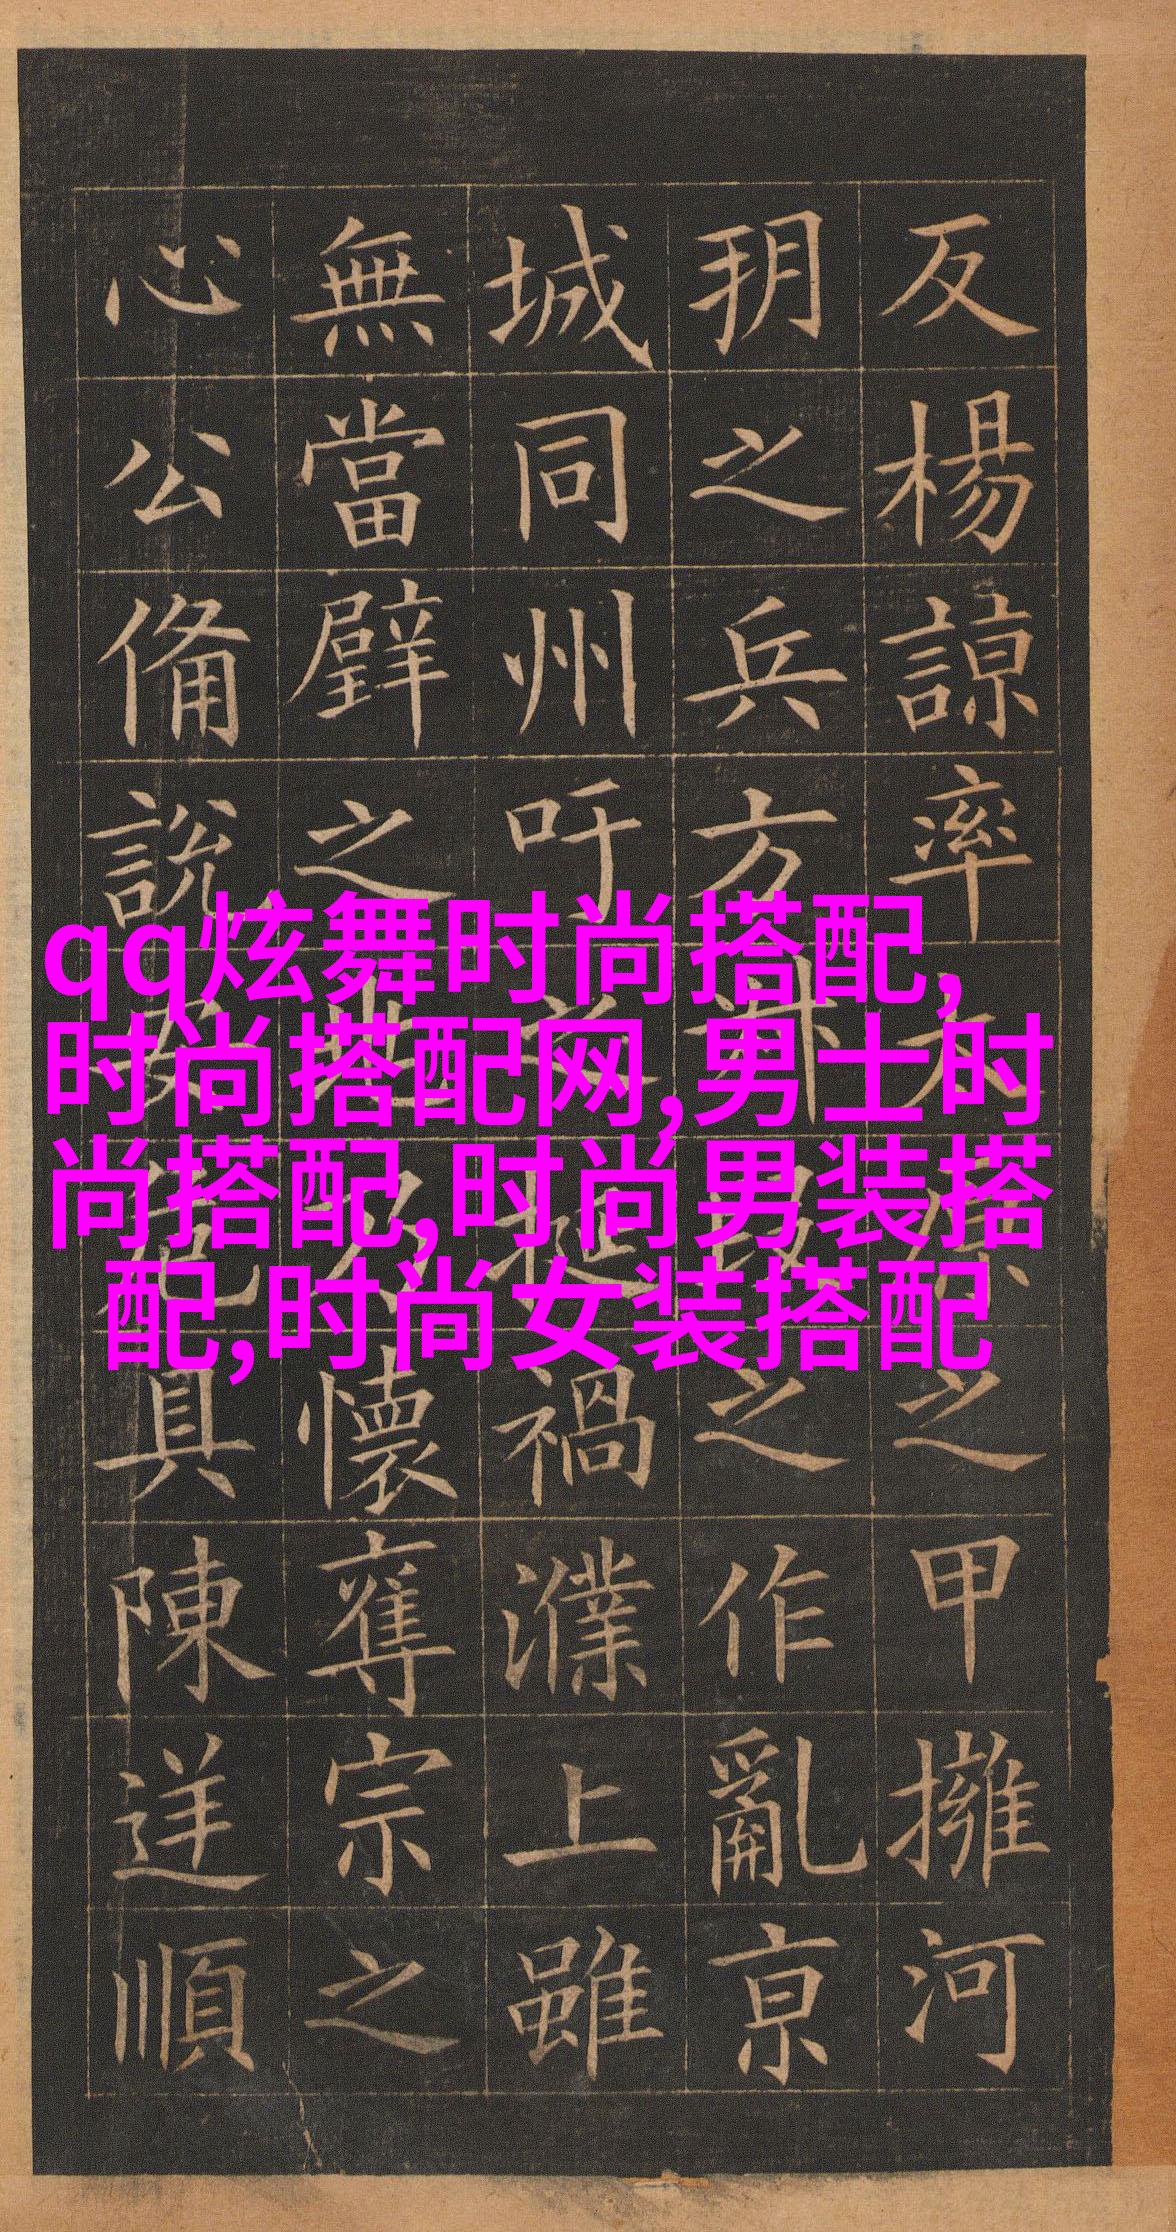 反楊諒率之甲擁河
朔之兵方叔段之作亂京
城同州吁之挺禍濮上雖
無當璧之懷奪宗之
心公備說危具陳逆順
qq炫舞时尚搭配,
时尚搭配网,男士时
尚搭配,时尚男装搭
配,时尚女装搭配